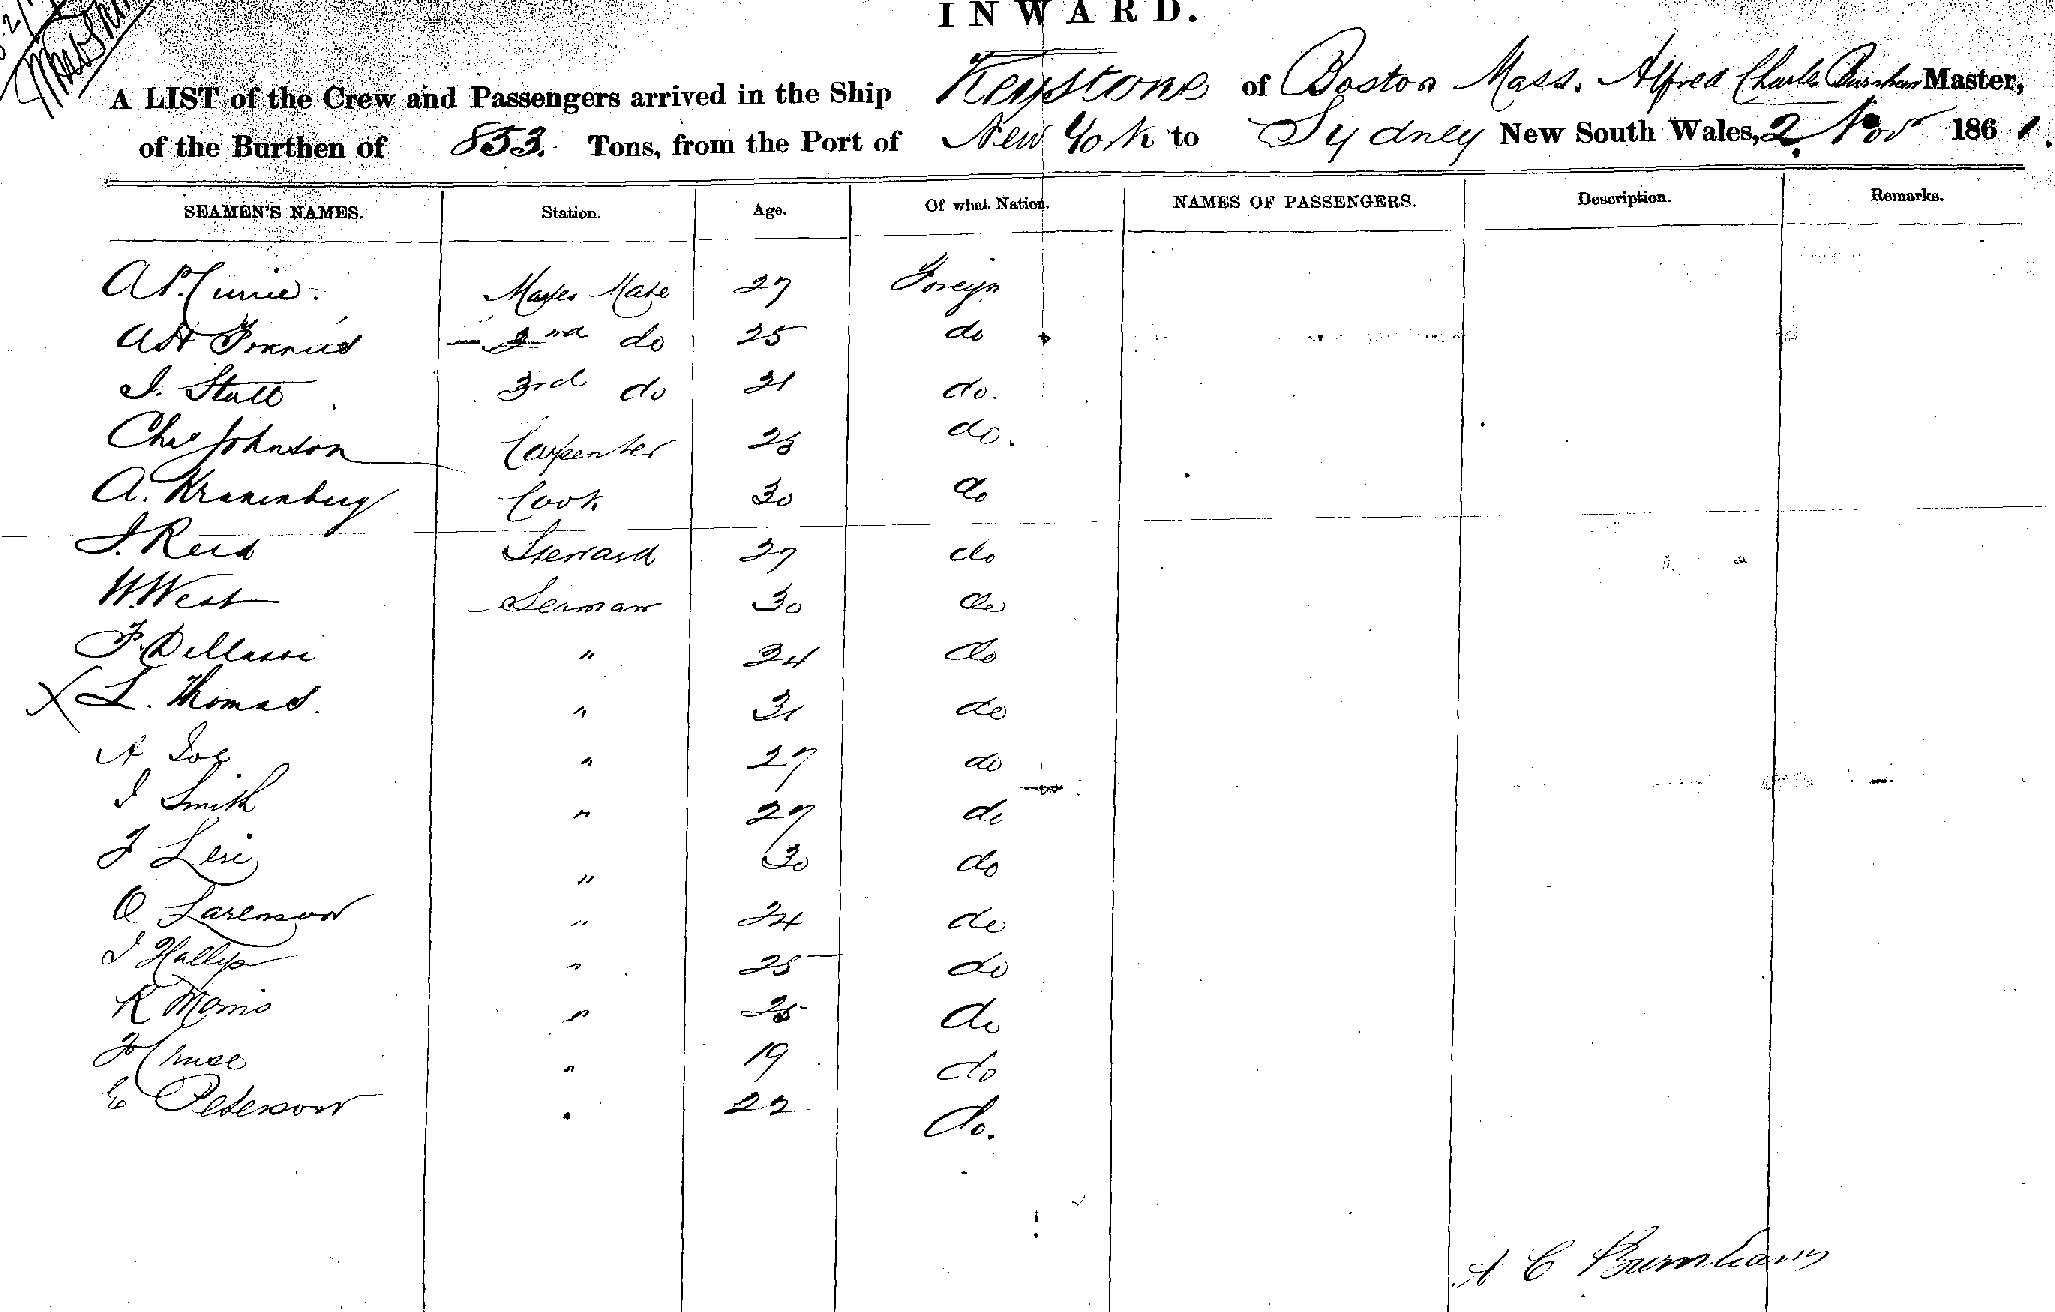 INWARD.
A LIST of the Crew and Passengers arrived in the Ship Keystone of Boston Mass. Alfred Charles Burnham Master,
of the Burthen of 853. Tons, from the Port of New York to Sydney New South Wales, 2. Nov 1861.
SEAMEN'S NAMES. Station. Age. Of what Nation. NAMES OF PASSENGERS. Description. Remarks.
A P. Currie. Mate 27 Foreign
A H 2nd do 25 do
3rd do 21 do.
Chas Johnson Carpenter 28 do.
A. Kranenberg Cook 30 do
J. Reid Steward 27 do
W. West Seaman 30 do
F. " 24 do
X L. Thomas. " 31 do
A " 27 do
J Smith " 27 do
J " 30 do
O Larenson " 24 do
J " 25 do
R Morris " 25 do
" 19 do
E Peterson " 22 do.
A C Burnham